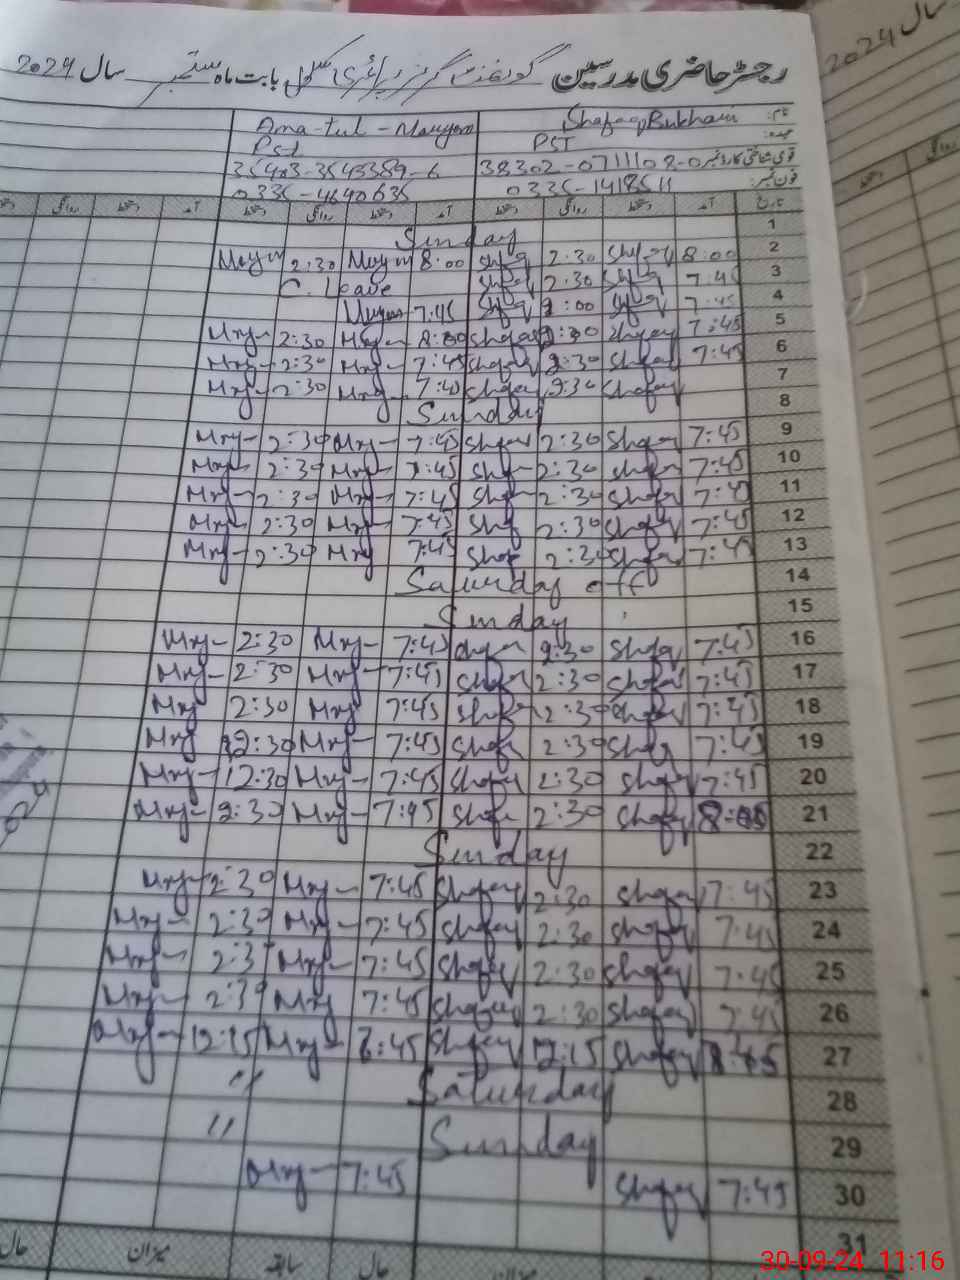 رجسٹر حاضری مدرسین گورنمنٹ گرلز پرائمری سکول بابت ماہ ستمبر سال 2024
سال 2024
نام: Shafaq Bukhari Ama-tul-Maryam
عہدہ: PST Pst
قومی شناختی کارڈ نمبر 38302-0711108-0 35403-3543389-6
فون نمبر: 0335-1418511 0335-4640635
تاریخ آمد دستخط روانگی دستخط آمد دستخط روانگی دستخط آمد دستخط روانگی دستخط
1 Sunday
2 8:00 Shfq 2:30 Shfq 8:00 Maym 2:30 Maym
3 7:45 Shfq 2:30 Shfq C. Leave
4 7:45 Shfq 2:00 Shfq 7:45
5 7:45 Shafaq 2:30 Shafaq 8:00 Mry 2:30 Mry
6 7:45 Shafaq 2:30 Shafaq 7:45 Mry 2:30 Mry
7 Shafaq 2:30 Shafaq 7:40 Mry 2:30 Mry
8 Sunday
9 7:45 Shafaq 2:30 Shafaq 7:45 Mry 2:30 Mry
10 7:45 Shafaq 2:30 Shafaq 7:45 Mry 2:30 Mry
11 7:45 Shafaq 2:30 Shafaq 7:45 Mry 2:30 Mry
12 7:45 Shafaq 2:30 Shfq 7:45 Mry 2:30 Mry
13 7:45 Shafaq 2:30 Shaf 7:45 Mry 2:30 Mry
14 Saturday off
15 Sunday
16 7:45 Shafaq 2:30 Shafaq 7:45 Mry 2:30 Mry
17 7:45 Shafaq 2:30 Shafaq 7:45 Mry 2:30 Mry
18 7:45 Shafaq 2:30 Shafaq 7:45 Mry 2:30 Mry
19 7:45 Shafaq 2:30 Shafaq 7:45 Mry 2:30 Mry
20 7:45 Shafaq 2:30 Shafaq 7:45 Mry 12:30 Mry
21 8:05 Shafaq 2:30 Shafaq 7:45 Mry 2:30 Mry
22 Sunday
23 7:45 Shafaq 2:30 Shafaq 7:45 Mry 2:30 Mry
24 7:45 Shafaq 2:30 Shafaq 7:45 Mry 2:30 Mry
25 7:45 Shafaq 2:30 Shafaq 7:45 Mry 2:3 Mry
26 7:45 Shafaq 2:30 Shafaq 7:45 Mry 2:30 Mry
27 8:45 Shafaq 12:15 Shafaq 8:45 Mry 12:15 Mry
28 Saturday "
29 Sunday "
30 7:45 Shafaq 7:45 Mry
31
میزان سابقہ حال میزان حال
30-09-24 11:16